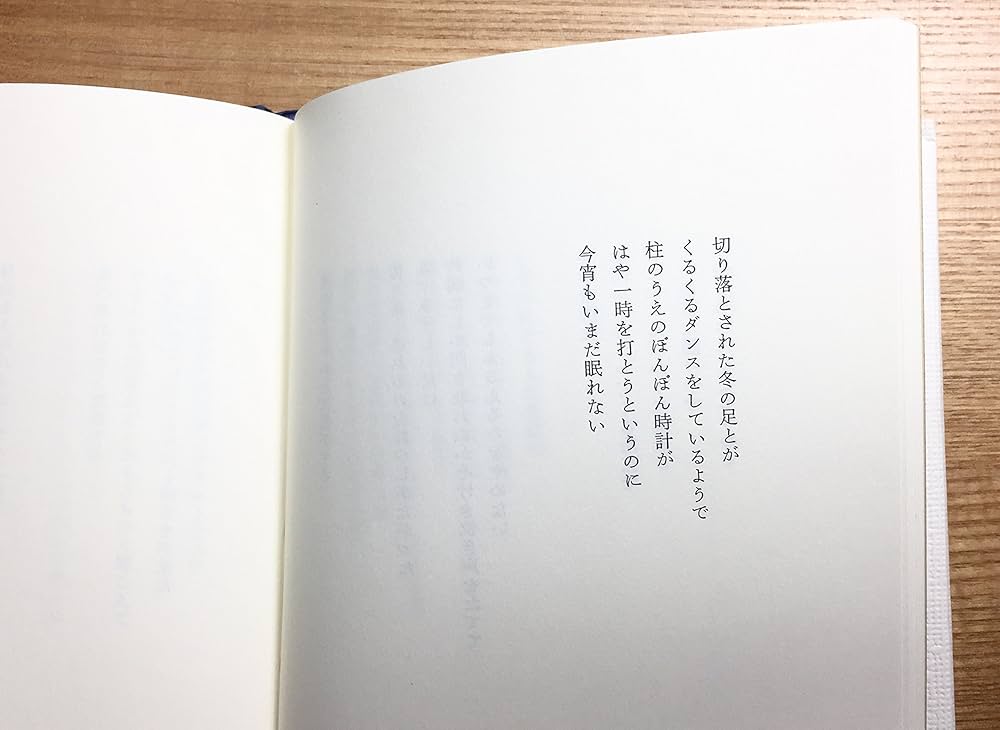 切り落とされた冬の足とが
くるくるダンスをしているようで
柱のうえのぽんぽん時計が
はや一時を打とうというのに
今宵もいまだ眠れない